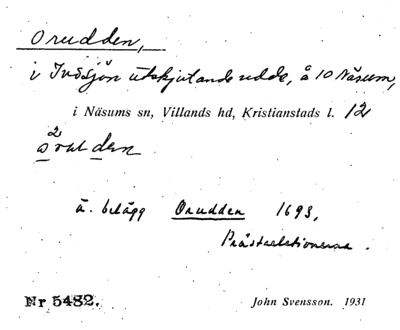 Orudden,
i Ivösjön utskjutande udde, å 10 Näsum,
i Näsums sn, Villands hd, Kristianstads l. 12
2
ä. belägg Orudden 1693,
Prästrelationerna.
Nr 5482. John Svensson. 1931